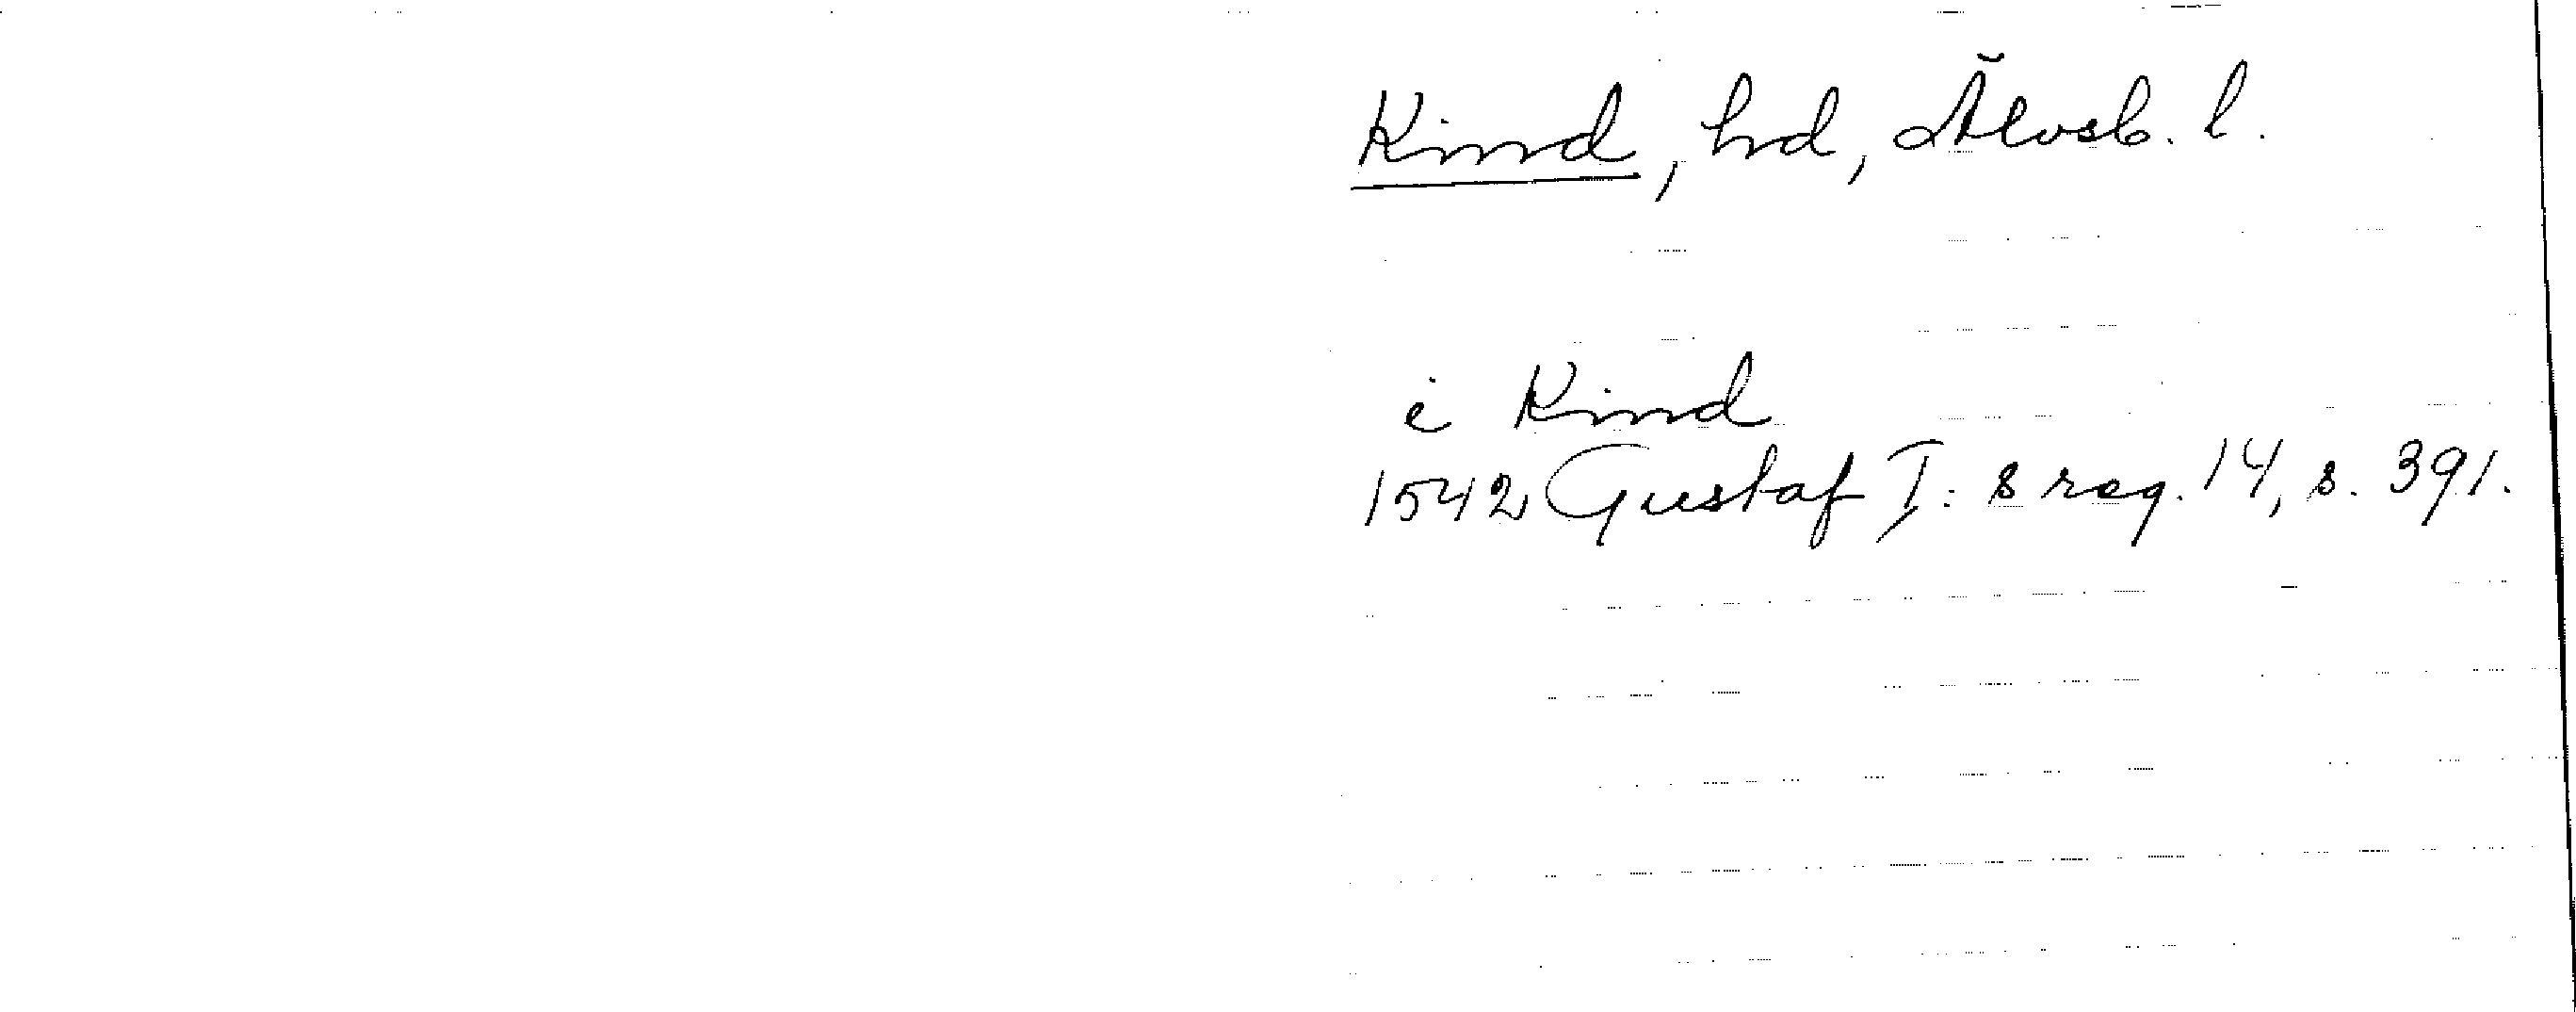 Kind, hd, Älvsb. l.
i Kind
1542 Gustaf I:s reg. 14, s. 391.